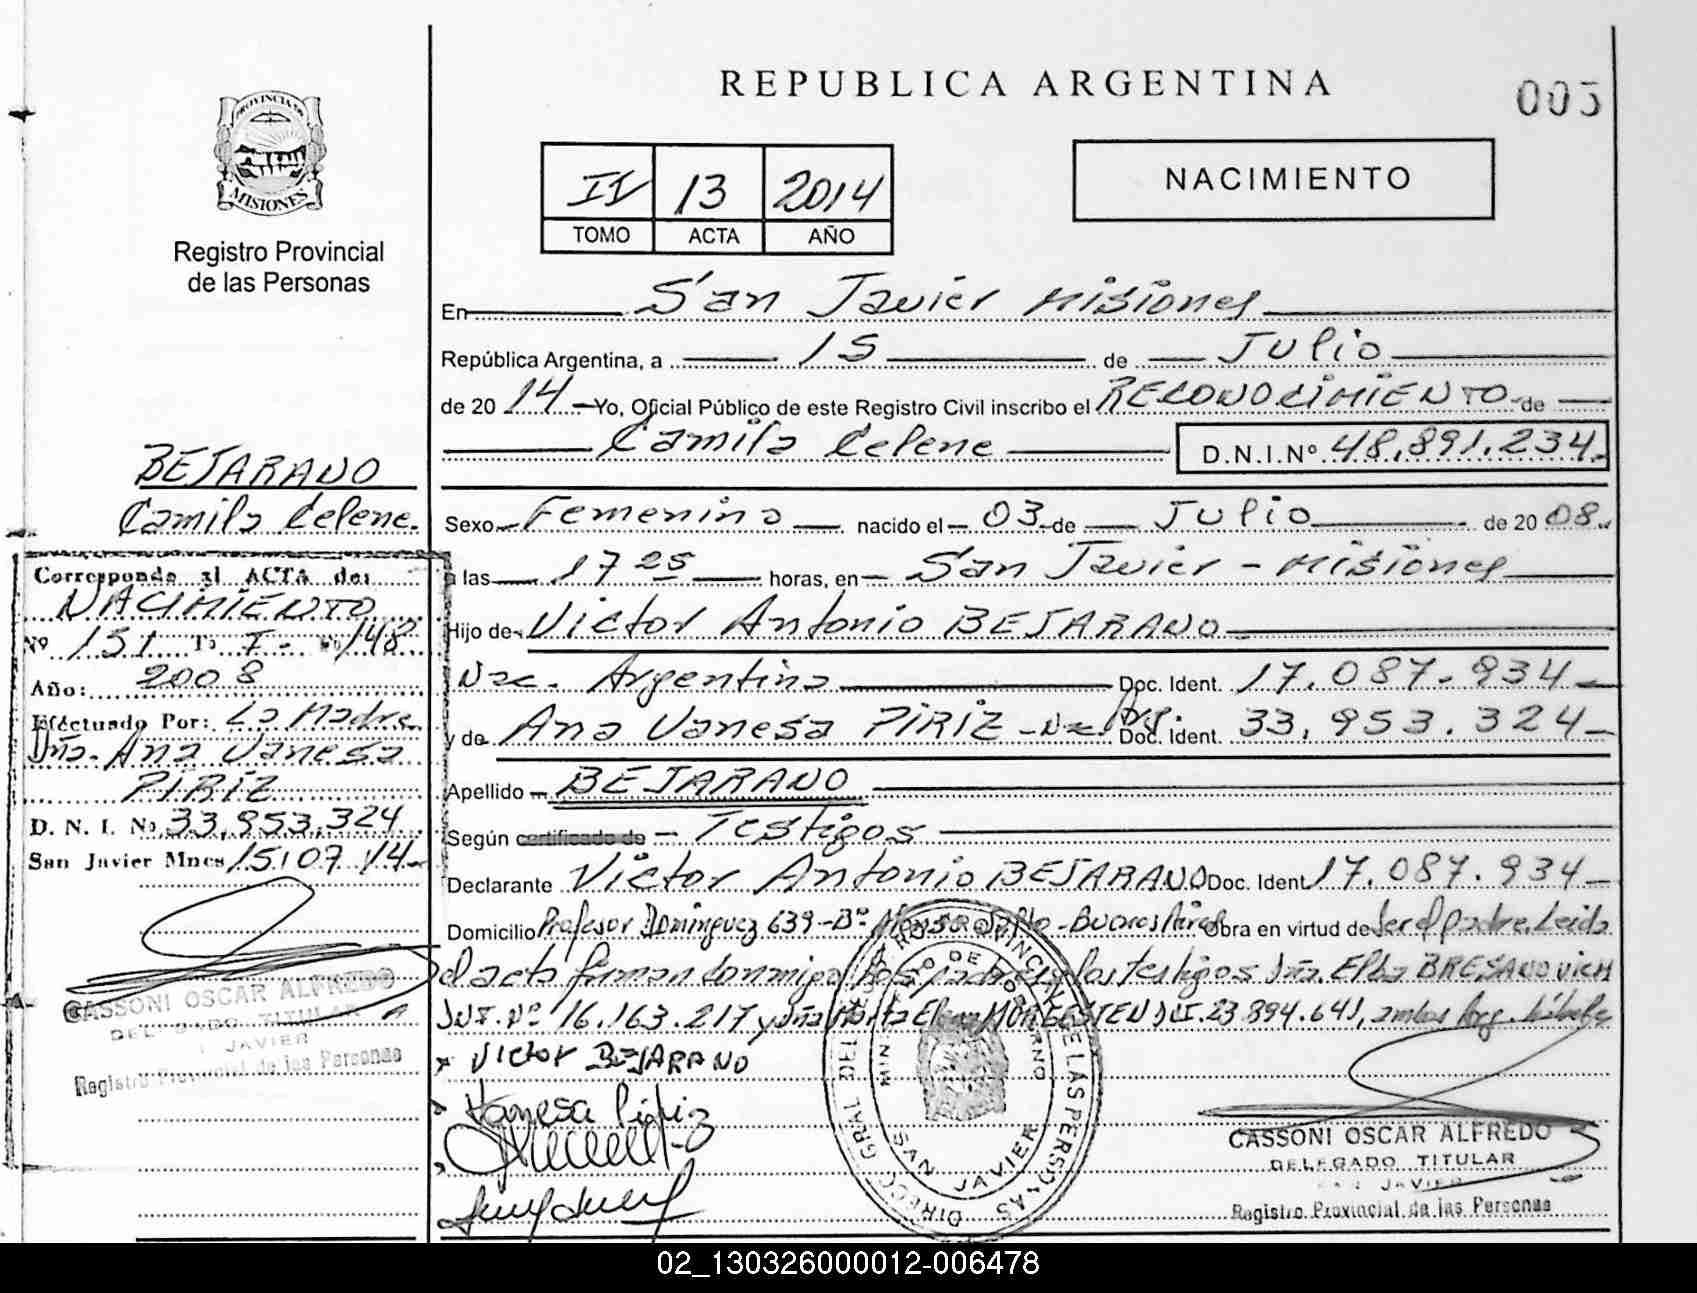 REPUBLICA ARGENTINA
005
PROVINCIA DE
MISIONES
Registro Provincial
de las Personas
II 13 2014
TOMO ACTA AÑO
NACIMIENTO
En San Javier Misiones
República Argentina, a 15 de Julio
de 20 14 Yo, Oficial Público de este Registro Civil inscribo el RECONOCIMIENTO de
Camila Celene D.N.I.Nº 48.891.234
Sexo Femenino nacido el 03 de Julio de 20 08
a las 17 25 horas, en San Javier - Misiones
Hijo de Victor Antonio BEJARANO
Nac. Argentina Doc. Ident. 17.087.934
y de Ana Vanesa PIRIZ - Nac. Arg. Doc. Ident. 33.953.324
Apellido BEJARANO
Según certificado de Testigos
Declarante Victor Antonio BEJARANO Doc. Ident 17.087.934
Domicilio Profesor Dominguez 639 - Bº - Buenos Aires Obra en virtud de Ser el padre. Leida
el acta firman conmigo los padres y los testigos Dña. Elba BRESANOVICH
D.N.I. Nº 16.163.217 y Dña Marta Elena D.N.I. 23.894.641, ambas Arg.
x Victor BEJARANO
Vanesa Piriz
CASSONI OSCAR ALFREDO
DELEGADO TITULAR
SAN JAVIER
Registro Provincial de las Personas
DIRECC. GRAL DEL REG. PROVINCIAL DE LAS PERSONAS
MINISTERIO DE GOBIERNO
SAN JAVIER
BEJARANO
Camila Celene.
Corresponde al ACTA de:
NACIMIENTO
Nº 131 Tº I - Fº 148
Año: 2008
Eféctuado Por: La Madre
Dña. Ana Vanesa
PIRIZ
D. N. I. Nº 33.953.324
San Javier Mnes 15/07/14
CASSONI OSCAR ALFREDO
DELEGADO TITULAR
JAVIER
Registro Provincial de las Personas
02_130326000012-006478